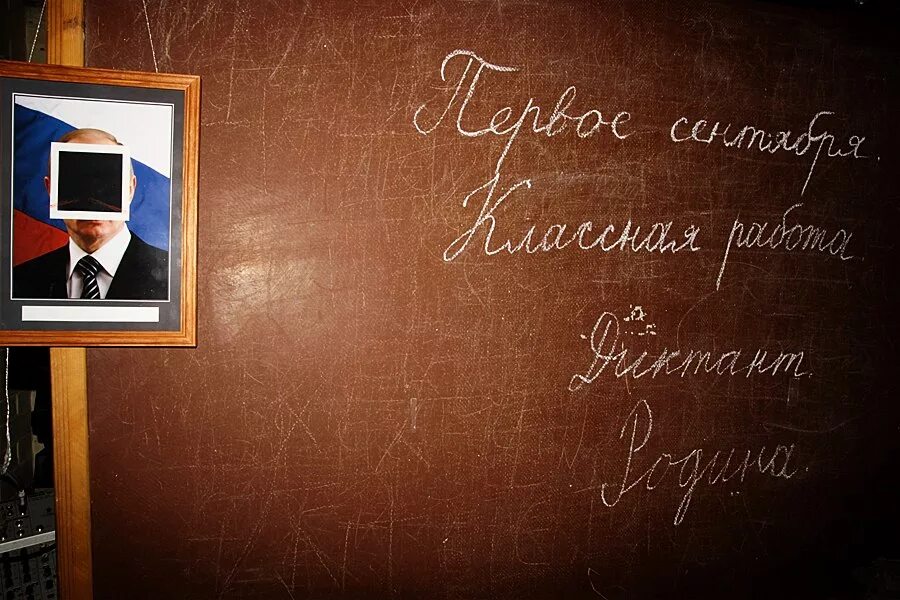 Первое сентября.
Классная работа.
Диктант.
Родина.